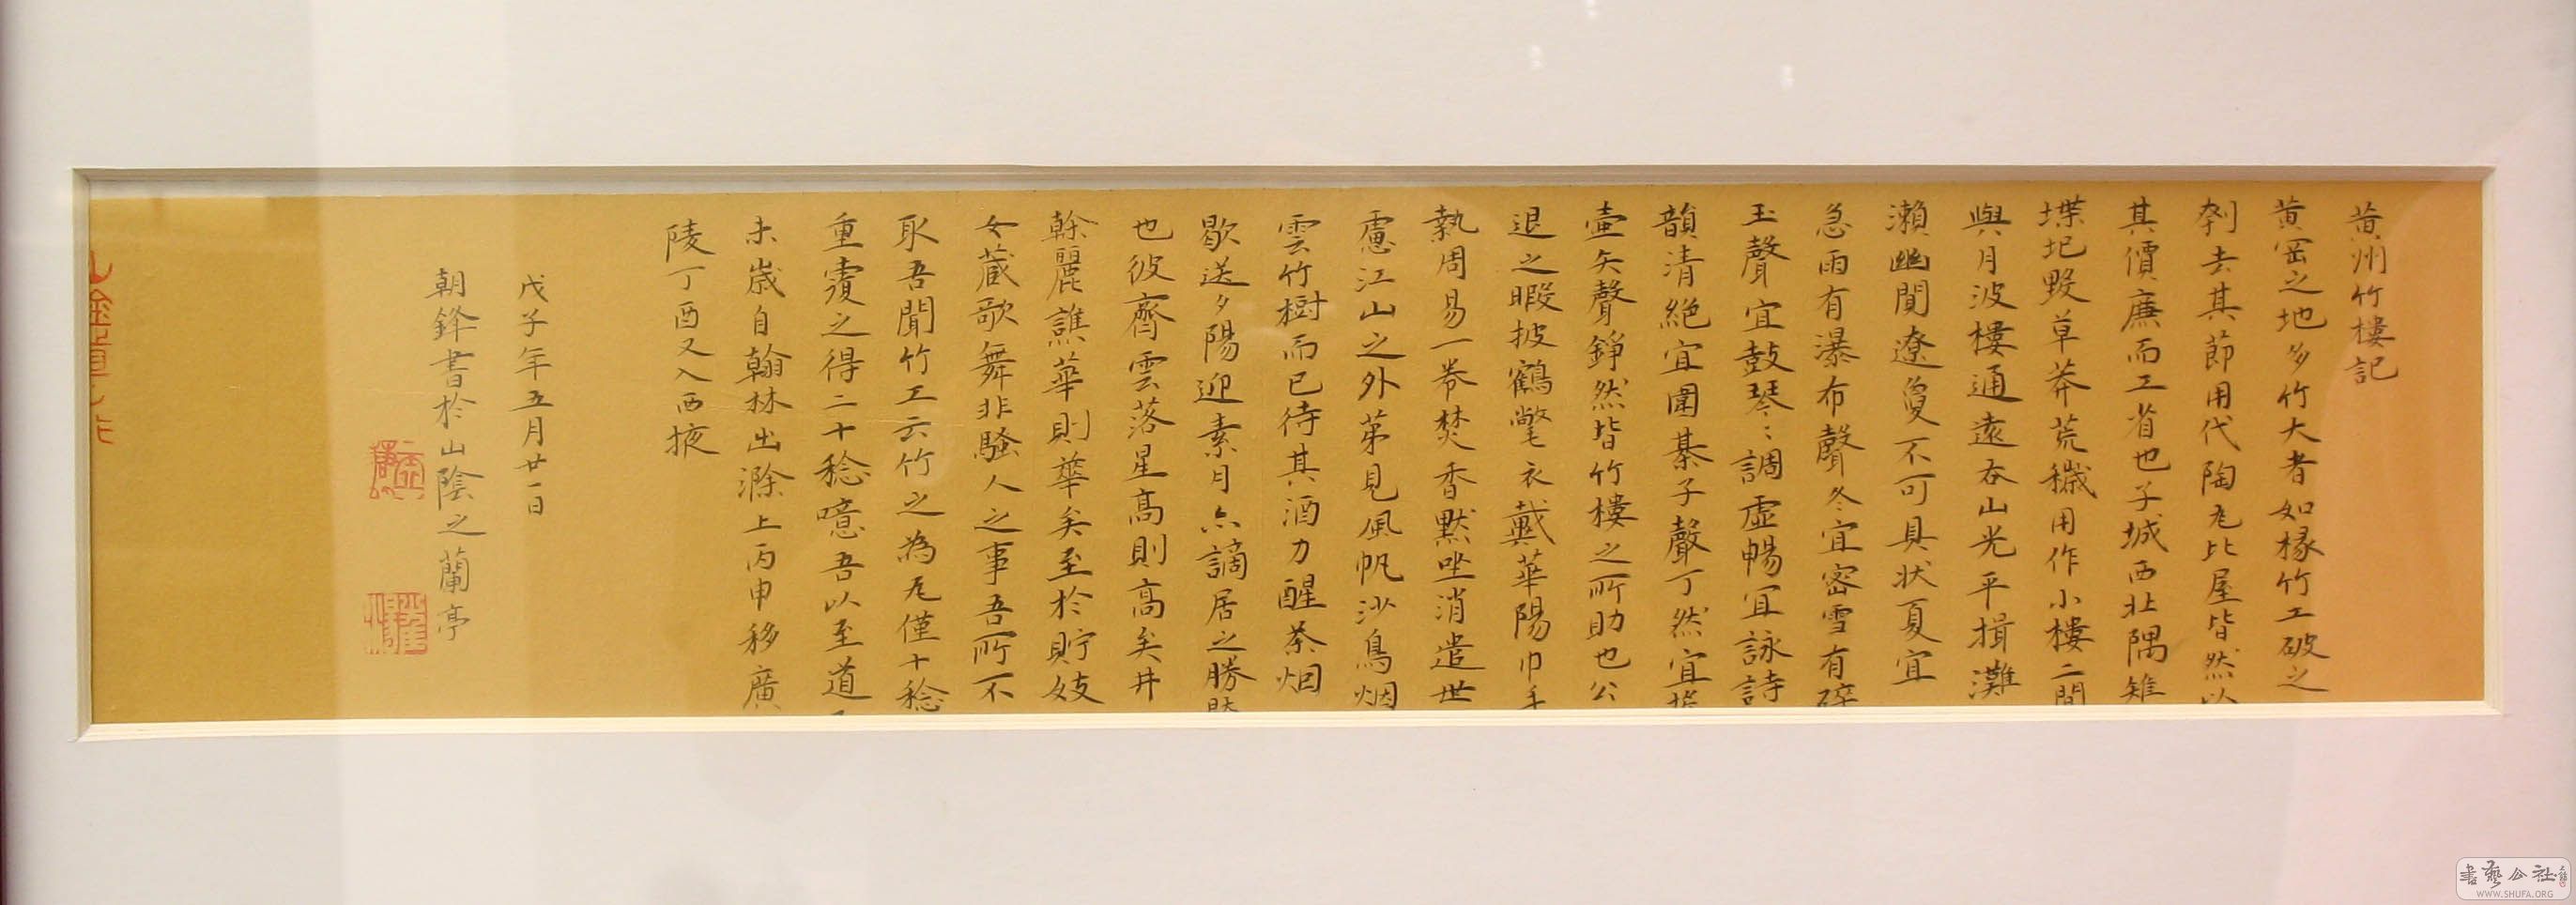 黄州竹樓記
黄岡之地多竹大者如椽竹工破之
刳去其節用代陶瓦比屋皆然以
其價廉而工省也子城西北隅雉
堞圮毀草莽荒穢用作小樓二間
與月波樓通遠吞山光平挹灘
瀨幽閴遼敻不可具狀夏宜
急雨有瀑布聲冬宜密雪有碎
玉聲宜鼓琴〻調虛暢宜詠詩
韻清絶宜圍棊子聲丁然宜投
壷矢聲錚然皆竹樓之所助也公
退之暇披鶴氅衣戴華陽巾手
執周易一卷焚香默坐消遣世
慮江山之外苐見風帆沙鳥烟
雲竹樹而已待其酒力醒茶烟
歇送夕陽迎素月亦謫居之勝
也彼齊雲落星高則高矣井
榦麗譙華則華矣至於貯妓
女藏歌舞非騷人之事吾所不
取吾聞竹工云竹之為瓦僅十稔
重覆之得二十稔噫吾以至道
未歲自翰林出滁上丙申移廣
陵丁酉又入西掖
戊子年五月廿一日
朝鋒書於山陰之蘭亭
書藝公社
WWW.SHUFA.ORG